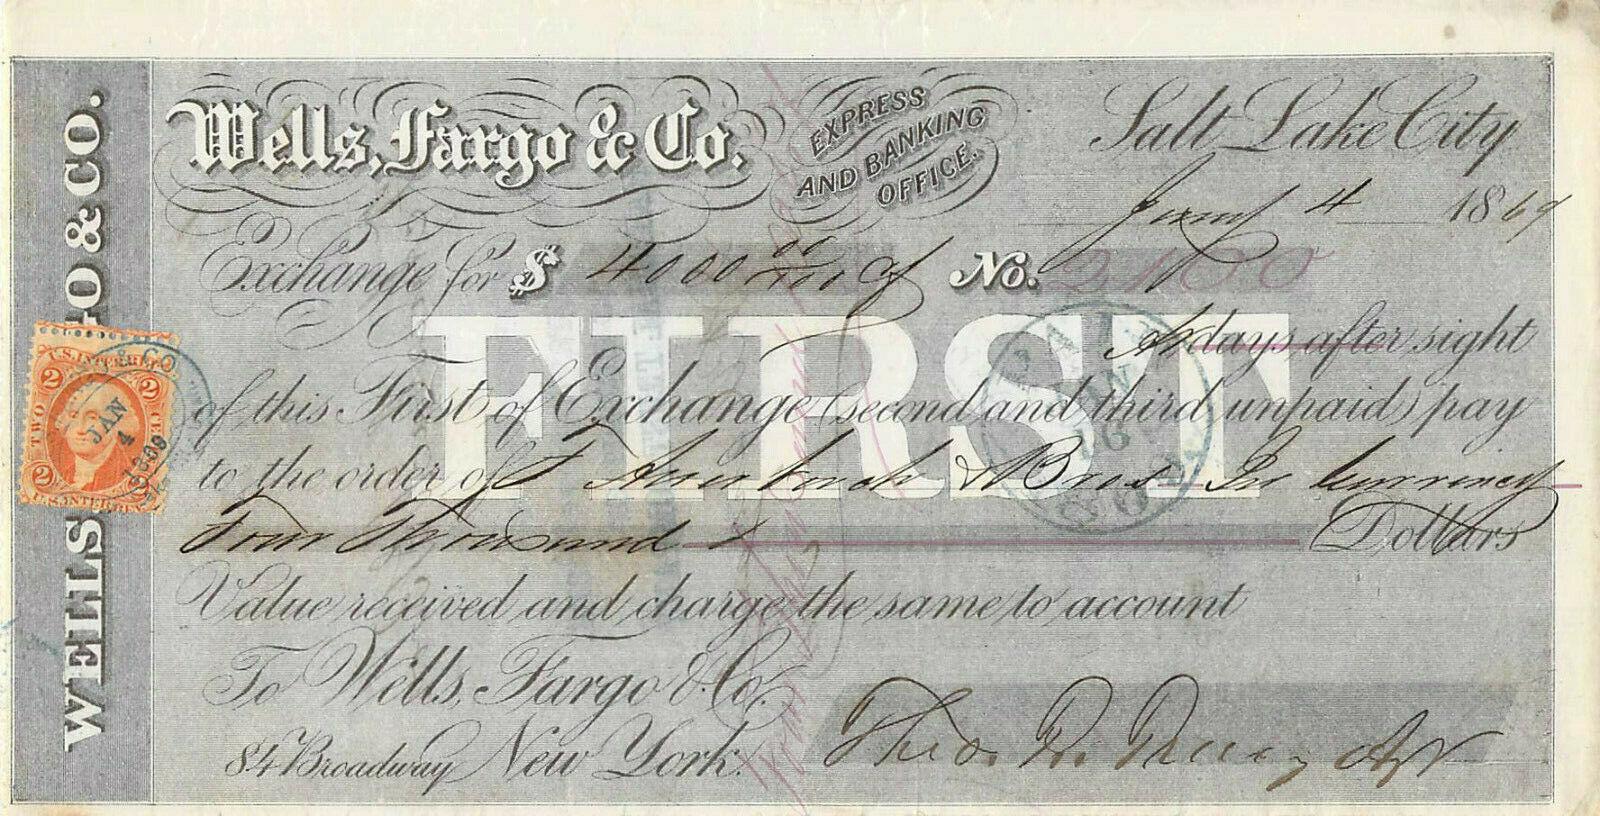 Wells, Fargo & Co.
EXPRESS
AND BANKING
OFFICE.
Salt Lake City
Jany 4 1869
Exchange for $ 4000 00/100 Cy No. 2100
FIRST
At days after sight
of this First of Exchange (second and third unpaid) pay
to the order of F Auerbach & Bros. In Currency
Four Thousand Dollars
Value received and charge the same to account
To Wells, Fargo & Co.
84 Broadway New York.
Theo. F. Tracy Agt
WELLS O & CO.
U.S. INTER. REV.
2 2
TWO CE
JAN
4
1869
2 2
U.S. INTER. REV.
PAID
JAN
16